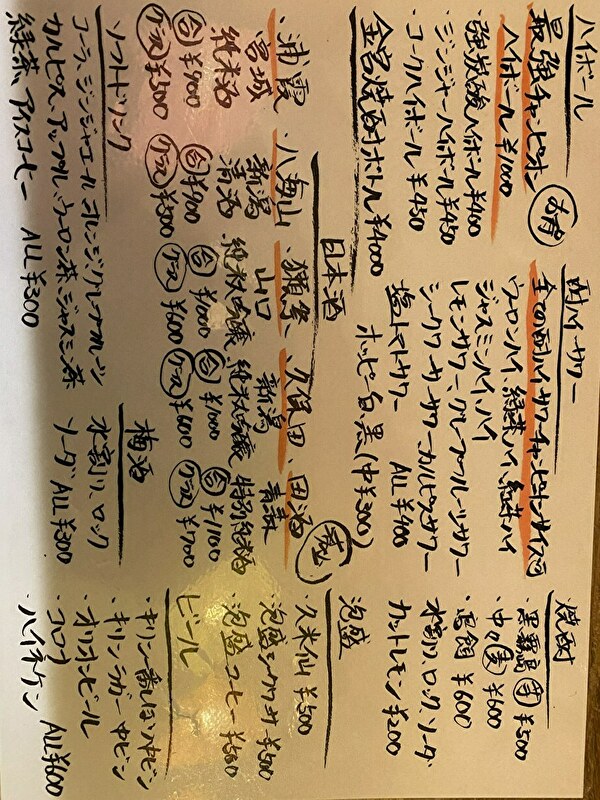 ハイボール
最強チャンピオン
ハイボール ¥1000
強炭酸ハイボール ¥400
ジンジャーハイボール ¥450
・コークハイボール ¥450
金宮焼酎ボトル ¥4000
酎ハイ・サワー
全ての酎ハイサワーチャンピオンサイズ可
ウーロンハイ、緑茶ハイ、紅茶ハイ
ジャスミンハイ
レモンサワー・グレープフルーツサワー
シークワーサーサワー カルピスサワー
塩トマトサワー ALL ¥400
ホッピー白・黒 (中¥300)
焼酎
・黒霧島 芋 ¥500
・中々 麦 ¥600
¥600
水割り、ロック、ソーダ
カットレモン ¥200
日本酒
・浦霞
宮城
純米酒
合 ¥900
グラス ¥500
・八海山
新潟
清酒
合 ¥900
グラス ¥500
・獺祭
山口
純米吟醸
合 ¥1000
グラス ¥600
・久保田
新潟
純米吟醸
合 ¥1000
グラス ¥600
田酒
青森
特別純米酒
合 ¥1100
グラス ¥700
泡盛
・久米仙 ¥500
・泡盛シークワーサー ¥500
・泡盛コーヒー ¥550
ソフトドリンク
コーラ、ジンジャエール、オレンジ、グレープフルーツ
カルピス、アップル、ウーロン茶、ジャスミン茶
緑茶、アイスコーヒー ALL ¥300
梅酒
水割り、ロック
ソーダ ALL ¥500
ビール
・キリン一番しぼり中ビン
・キリンラガー中ビン
・オリオンビール
・コロナ
・ハイネケン ALL ¥600